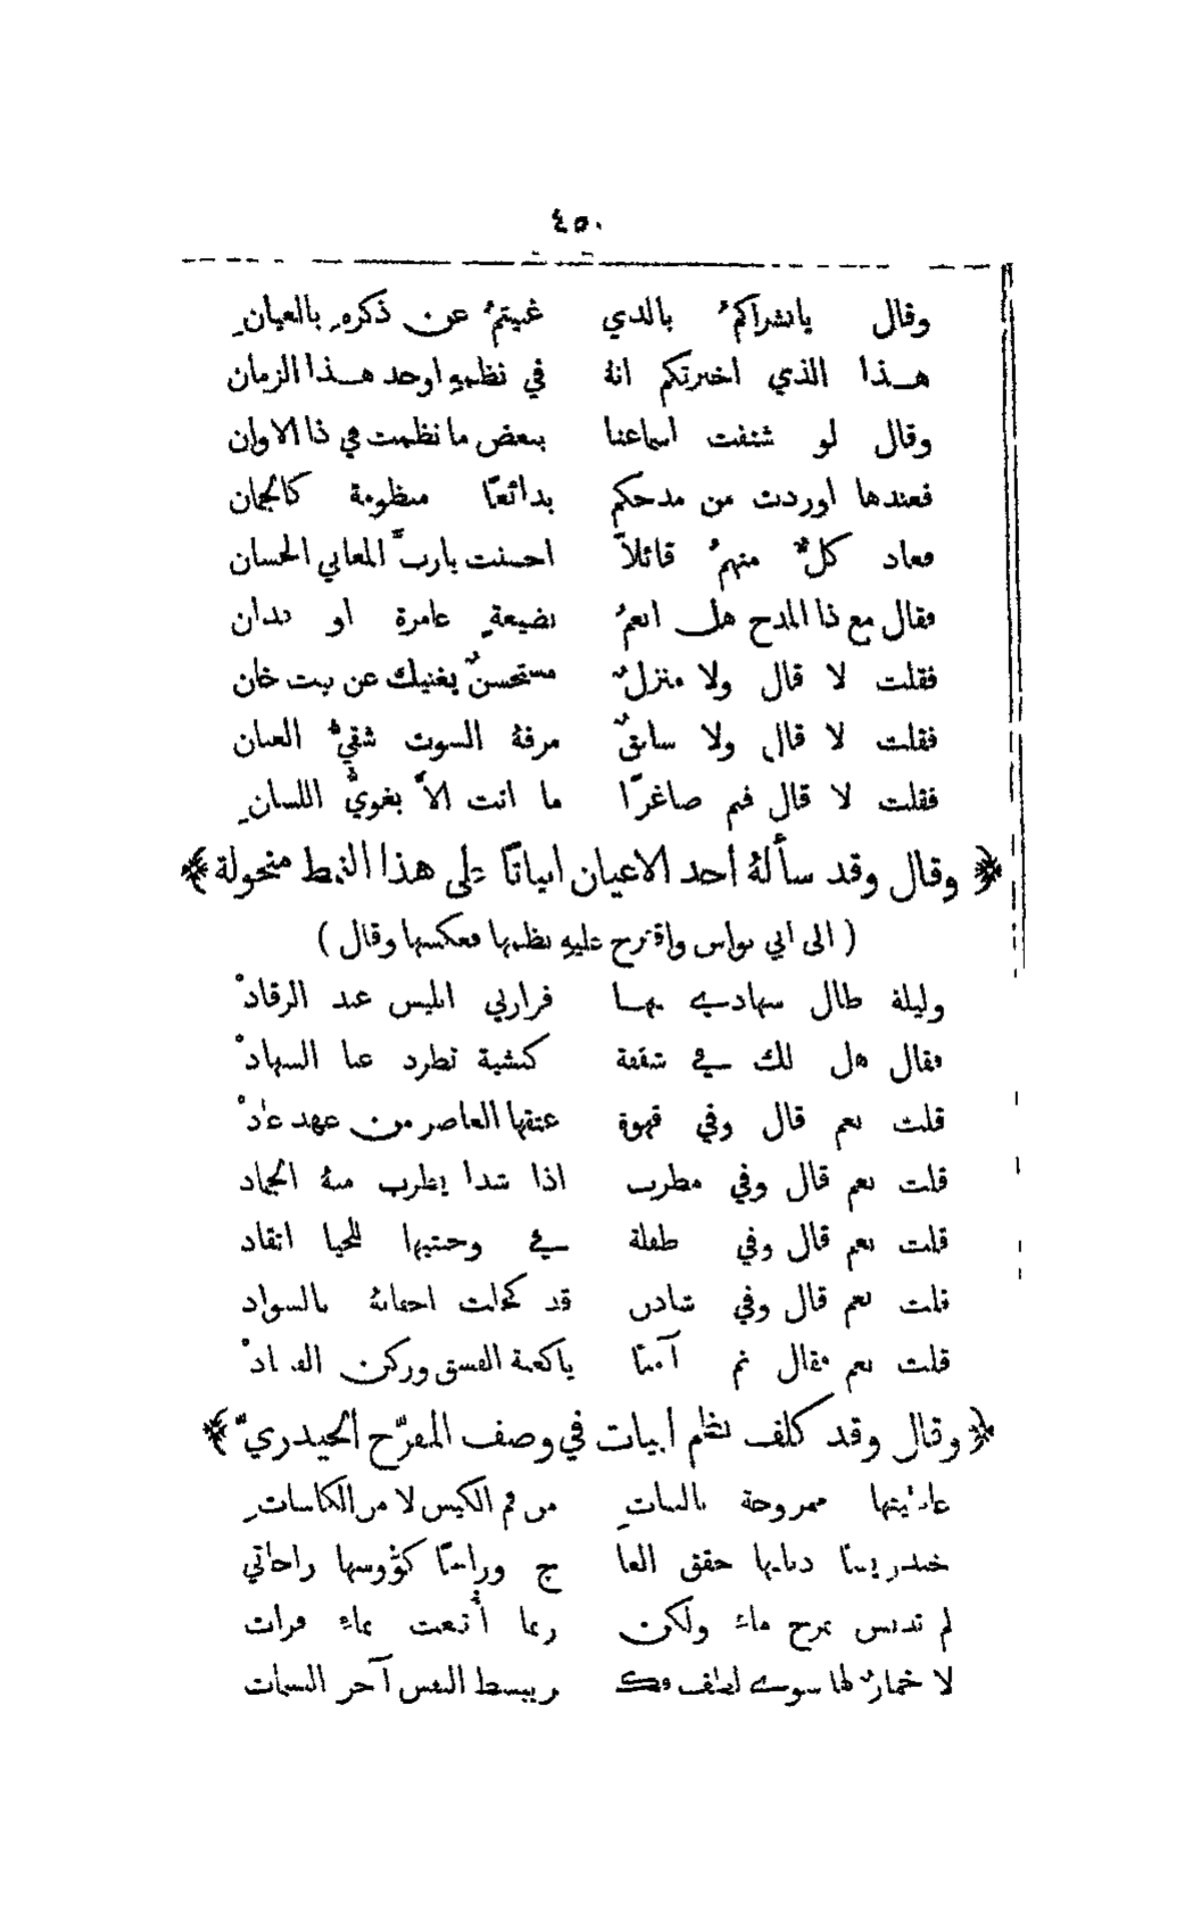 ٤٥٠
وقال يابشراكمُ بالذي غيبتمُ عن ذكرهِ بالعيانِ
هــذا الذي اخبرتكم انهُ في نظمهِ اوحد هــذا الزمان
وقال لو شنفت اسماعنا ببعض ما نظمت في ذا الاوان
فعندها اوردت من مدحكم بدائعًا منظومة كالجمان
فعاد كلٌ منهمُ قائلاً احسنت ياربَّ المعاني الحسان
فقال مع ذا المدح هل انعمُ بضيعةٍ عامرة او فدان
فقلت لا قال ولا منزلٌ مستحسنٌ يغنيك عن بيت خان
فقلت لا قال ولا سابقٌ مرفهُ السوط شقيُّ العنان
فقلت لا قال فنم صاغرًا ما انت الاَّ بغويُّ اللسانِ
﴿ وقال وقد سألهُ أحد الاعيان ابياتًا على هذا النمط منحولة ﴾
( الى ابي نواس واقترح عليهِ نظمها فعكسها وقال )
وليلة طال سهادي بهــا فزارني ابليس عند الرقادْ
فقال هل لك في شقفة كبشية تطرد عنا السهادْ
قلت نعم قال وفي قهوة عتقها العاصر من عهد عادْ
قلت نعم قال وفي مطرب اذا شدا يطرب منهُ الجماد
قلت نعم قال وفي طفلة في وجنتيها للحيا اتقاد
قلت نعم قال وفي شادن قد كحلت اجفانهُ بالسواد
قلت نعم فقال نم آمنًا ياكعبة الفسق وركن الفسادْ
﴿ وقال وقد كلف نظم أبيات في وصف المفرّح الحيدريّ ﴾
عاطيتها ممزوحة بالنبات من فم الكيس لا من الكاساتِ
خندريسًا دنانها حقق العا ج وراحتًا كؤوسها راحاتي
لم تدنس بمزج ماءٍ ولكن ربما أُتبعت بماءٍ فرات
لا خمارٌ لها سوى لطف فكـ ر يبسط النفس آخر النسمات